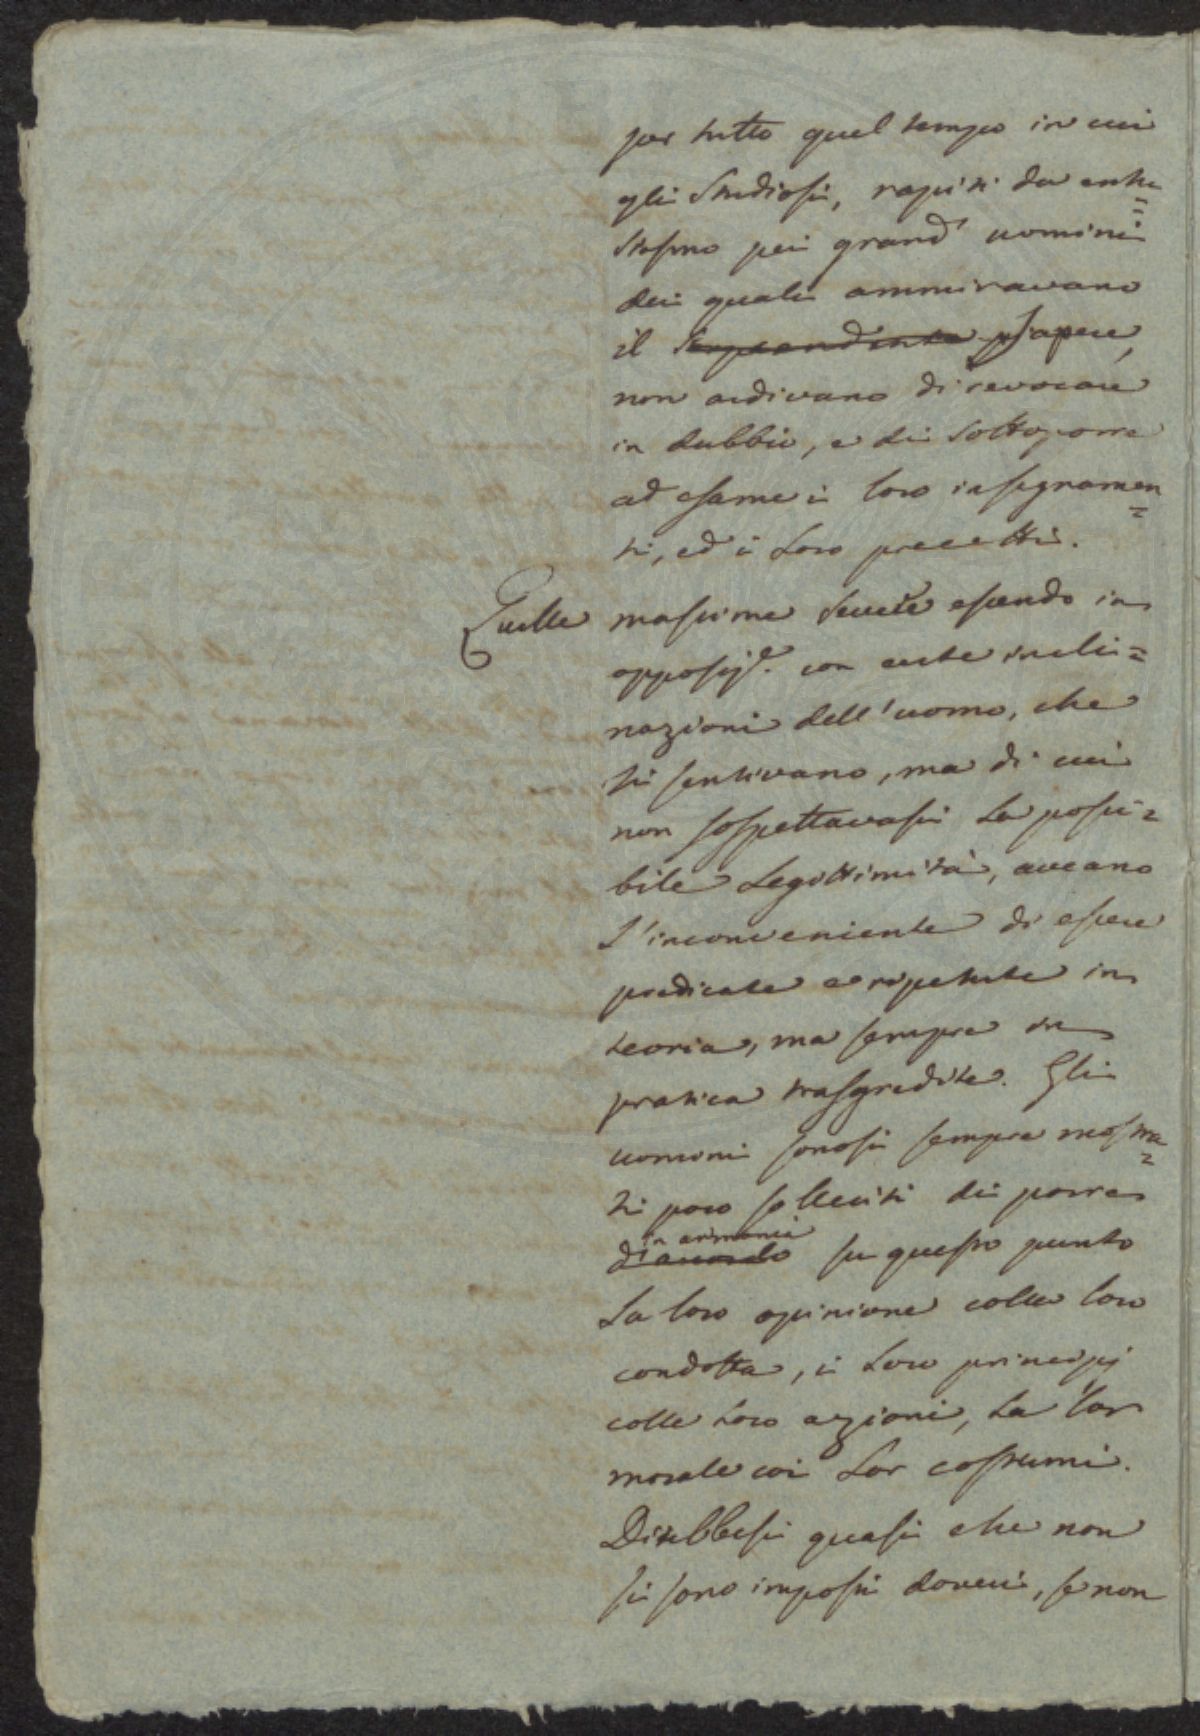 per tutto quel tempo in cui
gli studiosi, rapiti da entu=
siasmo pei grand' uomini
dei quali ammiravano
il sorprendente sapere,
non ardivano di revocare
in dubbio, e di sottoporre
ad esame i loro insegnamen=
ti, ed i loro precetti.
Quelle massime severe essendo in
opposiz.e con certe incli=
nazioni dell'uomo, che
si sentivano, ma di cui
non sospettavasi la possi=
bile legittimità, aveano
l'inconveniente di essere
predicate e ripetute in
teoria, ma sempre in
pratica trasgredite. Gli
uomini sonosi sempre mostra=
ti poco solleciti di porre
in armonia
d'accordo su questo punto
la loro opinione colla loro
condotta, i loro principj
colle loro azioni, la lor
morale coi lor costumi.
Direbbesi quasi che non
si sono imposti doveri, se non